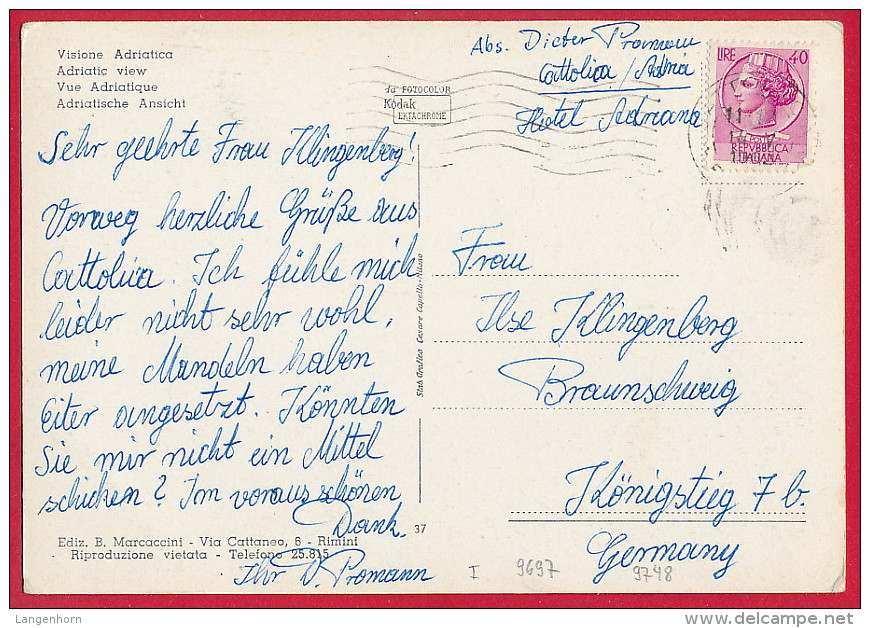 Visione Adriatica
Adriatic view
Vue Adriatique
Adriatische Ansicht
da FOTOCOLOR
Kodak
EKTACHROME
Abs. Dieter Promann
Cattolica / Adria
Hotel Adriana
LIRE 40
POSTE
REPVBBLICA
ITALIANA
Sehr geehrte Frau Klingenberg!
Vorweg herzliche Grüße aus
Cattolica. Ich fühle mich
leider nicht sehr wohl,
meine Mandeln haben
Eiter angesetzt. Könnten
Sie mir nicht ein Mittel
schicken? Im voraus schönen
Dank.
Ihr D. Promann
Ediz. B. Marcaccini - Via Cattaneo, 6 - Rimini
Riproduzione vietata - Telefono 25.815
37
Stab Grafico Cesare Capello - Milano
Frau
Ilse Klingenberg
Braunschweig
Königstieg 7 b.
Germany
I 9697 9748
Langenhorn
http://www.delcampe.net